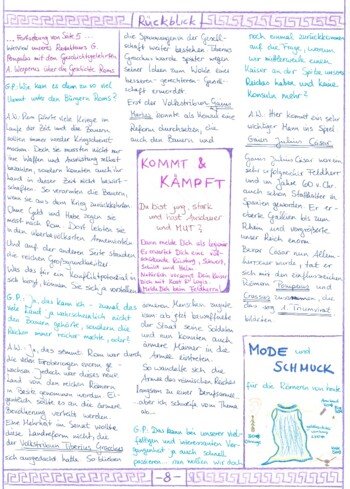 Rückblick
... Fortsetzung von Seite 5 ...
Interview unseres Redakteurs G.
Pompilus mit dem Geschichtsgelehrten
A. Wesperus über die Geschichte Roms
G.P.: Wie kam es denn zu so viel
Unmut unter den Bürgern Roms?
A.W.: Rom führte viele Kriege im
Laufe der Zeit und die Bauern
waren immer wieder Kriegsdienst
machen. Doch sie mussten nicht nur
ihre Waffen und Ausrüstung selbst
bezahlen, sondern konnten auch ihr
Land in dieser Zeit nicht bewirt-
schaften. So verarmten die Bauern,
wenn sie aus dem Krieg zurückkehrten.
Ohne Geld und Habe zogen sie
meist nach Rom. Dort lebten sie
in den überbevölkerten Armenvierteln.
Und auf der anderen Seite standen
die reichen Großgrundbesitzer.
Was das für ein Konfliktpotential in
sich barg, können Sie sich ja vorstellen.
G.P.: Ja, das kann ich - zumal das
viele Land ja wahrscheinlich nicht
den Bauern gehörte, sondern die
Reichen immer reicher machte, oder?
A.W.: Ja, das stimmt. Rom war durch
die vielen Eroberungen enorm ge-
wachsen. Jedoch war dieses neue
Land von den reichen Römern
in Besitz genommen worden. Ei-
gentlich sollte es an die ärmere
Bevölkerung verteilt werden.
Eine Mehrheit im Senat wollte
diese Landreform nicht, die
der Volkstribun Tiberius Gracchus
sich ausgedacht hatte. So blieben
die Spannungen in der Gesell-
schaft weiter bestehen. Tiberius
Gracchus wurde später wegen
seiner Ideen zum Wohle einer
besseren, gerechteren Gesell-
schaft ermordet.
Erst der Volkstribun Gaius
Marius konnte als Konsul eine
Reform durchsetzen, die
auch den Bauern und
KOMMT &
KÄMPFT
Du bist jung, stark
und hast Ausdauer
und MUT?
Dann melde Dich als Legionär.
Du erwartet Dich eine voll-
ständige Rüstung, Schwert,
Schild und Helm.
Natürlich versorgt Dein Kaiser
Dich mit Kost & Logis
Melde Dich beim Feldherrn!
ärmeren Menschen zugute
kam: ab jetzt bewaffnete
der Staat seine Soldaten
und nun konnten auch
ärmere Männer in die
Armee eintreten.
So wandelte sich die
Armee des römischen Reiches
langsam zu einer Berufsarmee...
aber ich schweife vom Thema
ab...
G.P.: Das kann bei unserer viel-
fältigen und interessanten Ver-
gangenheit ja auch schnell
passieren... nun wollen wir doch
noch einmal zurückkommen
auf die Frage, warum
wir mittlerweile einen
Kaiser an der Spitze unseres
Reiches haben und keine
Konsuln mehr?
A.W.: Hier kommt ein sehr
wichtiger Mann ins Spiel:
Gaius Julius Caesar.
Gaius Julius Caesar war ein
sehr erfolgreicher Feldherr
und im Jahre 60 v. Chr.
auch schon Statthalter in
Spanien geworden. Er er-
oberte Gallien bis zum
Rhein und vergrößerte
unser Reich enorm.
Bevor Caesar zum Allein-
herrscher wurde, tat er
sich mit den einflussreichen
Männern Pompeius und
Crassus zusammen, die
das sog. 1. Triumvirat
bildeten.
MODE und
SCHMUCK
für die Römerin von heute
-8-